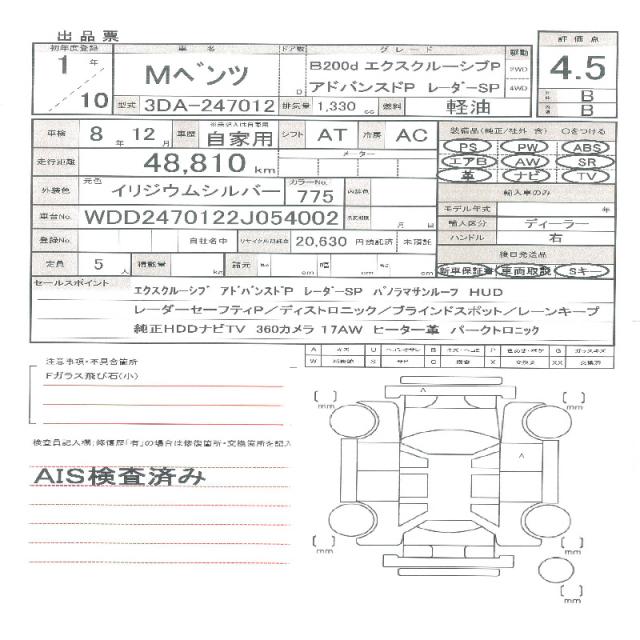 出品票
初年度登録 車名 ドア数 グレード 駆動 評価点
1年 Mベンツ D B200d エクスクルーシブP 2WD 4.5
10 アドバンスドP レーダーSP 4WD B
型式 3DA-247012 排気量 1,330 cc 燃料 軽油 B
車検 8年 12月 車歴 自家用 シフト AT 冷房 AC 装備品(純正/社外 含) ○をつける
走行距離 48,810 km メーター PS PW ABS
エアB AW SR
革 ナビ TV
外装色 元色 イリジウムシルバー カラーNo. 775 内装色 輸入車のみ
モデル年式 年
車台No. WDD2470122J054002 月 日 輸入区分 ディーラー
登録No. 自社名中 リサイクル預託金 20,630 円預託済 未預託 ハンドル 右
後日発送品
定員 5人 積載量 km 諸元 長 cm 幅 cm 高 cm 新車保証書 車両取説 Sキー
セールスポイント
エクスクルーシブ アドバンスドP レーダーSP パノラマサンルーフ HUD
レーダーセーフティP/ディストロニック/ブラインドスポット/レーンキープ
純正HDDナビTV 360カメラ 17AW ヒーター革 パークトロニック
注意事項・不具合箇所
Fガラス飛び石(小)
A
検査員記入欄:修復歴「有」の場合は修復箇所・交換箇所を記入
AIS検査済み
A
mm
mm
mm
mm
mm